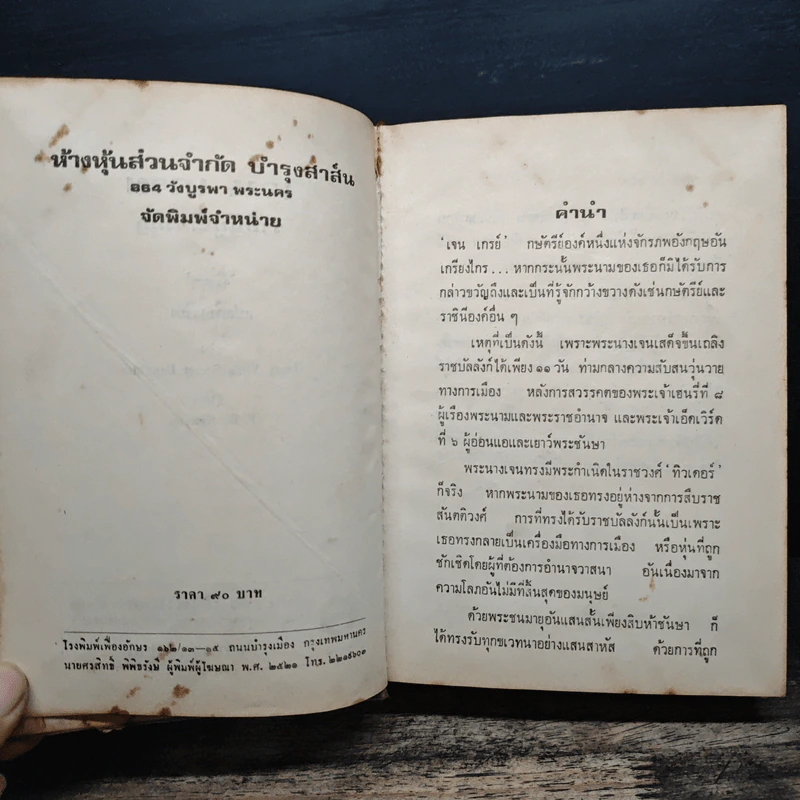 ห้างหุ้นส่วนจำกัด บำรุงสาส์น
๑๑๔ วังบูรพา พระนคร
จัดพิมพ์จำหน่าย
ราคา ๙๐ บาท
โรงพิมพ์เฟื่องอักษร ๑๖๒/๑๓—๑๕ ถนนบำรุงเมือง กรุงเทพมหานคร
นายศรสิทธิ์ พิพิธรังษี ผู้พิมพ์ผู้โฆษณา พ.ศ. ๒๕๒๑ โทร. ๒๒๑๕๖๐๓
คำนำ
'เจน เกรย์' กษัตรีย์องค์หนึ่งแห่งจักรภพอังกฤษอัน
เกรียงไกร ... หากกระนั้นพระนามของเธอก็มิได้รับการ
กล่าวขวัญถึงและเป็นที่รู้จักกว้างขวางดังเช่นกษัตรีย์และ
ราชินีองค์อื่น ๆ
เหตุที่เป็นดังนี้ เพราะพระนางเจนเสด็จขึ้นเถลิง
ราชบัลลังก์ได้เพียง ๑๑ วัน ท่ามกลางความสับสนวุ่นวาย
ทางการเมือง หลังการสวรรคตของพระเจ้าเฮนรี่ที่ ๘
ผู้เรืองพระนามและพระราชอำนาจ และพระเจ้าเอ็ดเวิร์ด
ที่ ๖ ผู้อ่อนแอและเยาว์พระชันษา
พระนางเจนทรงมีพระกำเนิดในราชวงศ์ 'ทิวเดอร์'
ก็จริง หากพระนามของเธอทรงอยู่ห่างจากการสืบราช
สันตติวงศ์ การที่ทรงได้รับราชบัลลังก์นั้นเป็นเพราะ
เธอทรงกลายเป็นเครื่องมือทางการเมือง หรือหุ่นที่ถูก
ชักเชิดโดยผู้ที่ต้องการอำนาจวาสนา อันเนื่องมาจาก
ความโลภอันไม่มีที่สิ้นสุดของมนุษย์
ด้วยพระชนมายุอันแสนสั้นเพียงสิบห้าชันษา ก็
ได้ทรงรับทุกขเวทนาอย่างแสนสาหัส ด้วยการที่ถูก